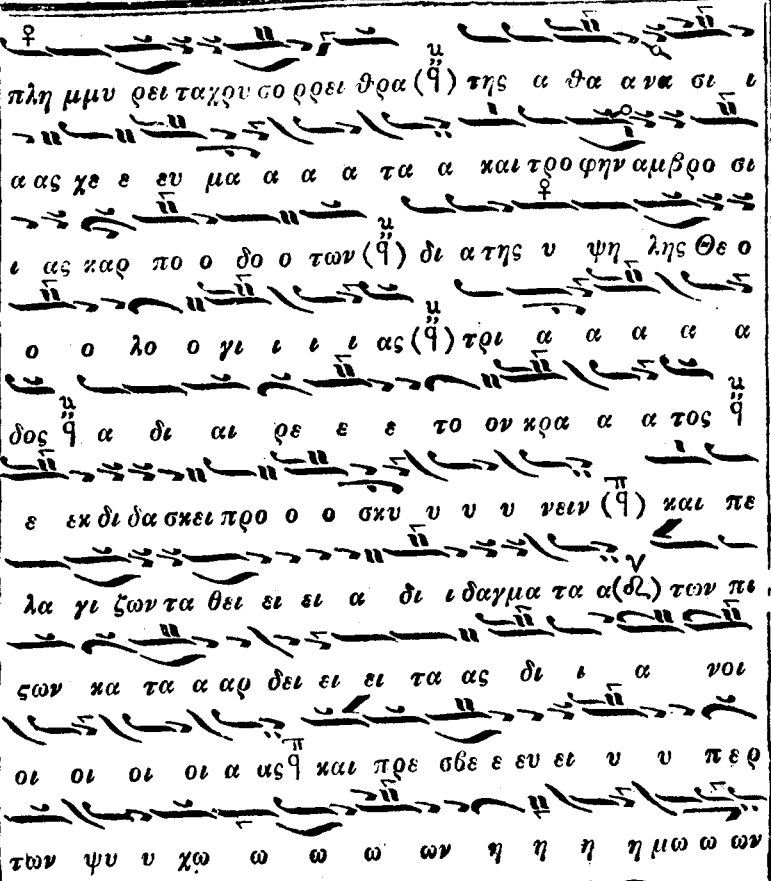 πλη μμυ ρει ταχρυ σο ρρει θρα (q̈) της α θα α να σι ι
α ας χε ε ευ μα α α α τα α και τρο φην αμβρο σι
ι ας καρ πο ο δο ο των (q̈) δι α της υ ψη λης Θε ο
ο ο λο ο γι ι ι ι ας (q̈) τρι α α α α α
δος q̈ α δι αι ρε ε ε το ον κρα α α τος q̈
ε εκ δι δα σκει προ ο ο σκυ υ υ υ νειν (q) και πε
λα γι ζων τα θει ει ει α δι ι δαγμα τα α των πι
ςων κα τα α αρ δει ει ει τα ας δι ι α νοι
οι οι οι οι α ας q και πρε σβε ε ευ ει υ υ περ
των ψυ υ χω ω ω ω ων η η η η μω ω ων